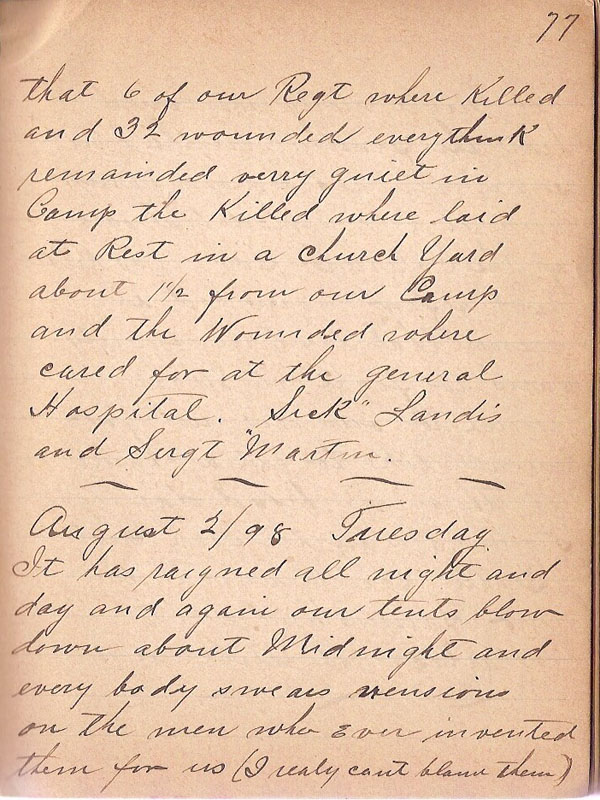 77
that 6 of our Regt where Killed
and 32 wounded everythink
remainded verry quiet in
Camp the Killed where laid
at Rest in a church Yard
about 1 1/2 from our Camp
and the Wounded where
cared for at the general
Hospital. Sick" Landis
and Sergt "Martin.
August 2/98 Tuesday
It has raigned all night and
day and again our tents blow
down about Midnight and
every body swears vensions
on the men who Ever invented
them for us (I realy cant blame them)